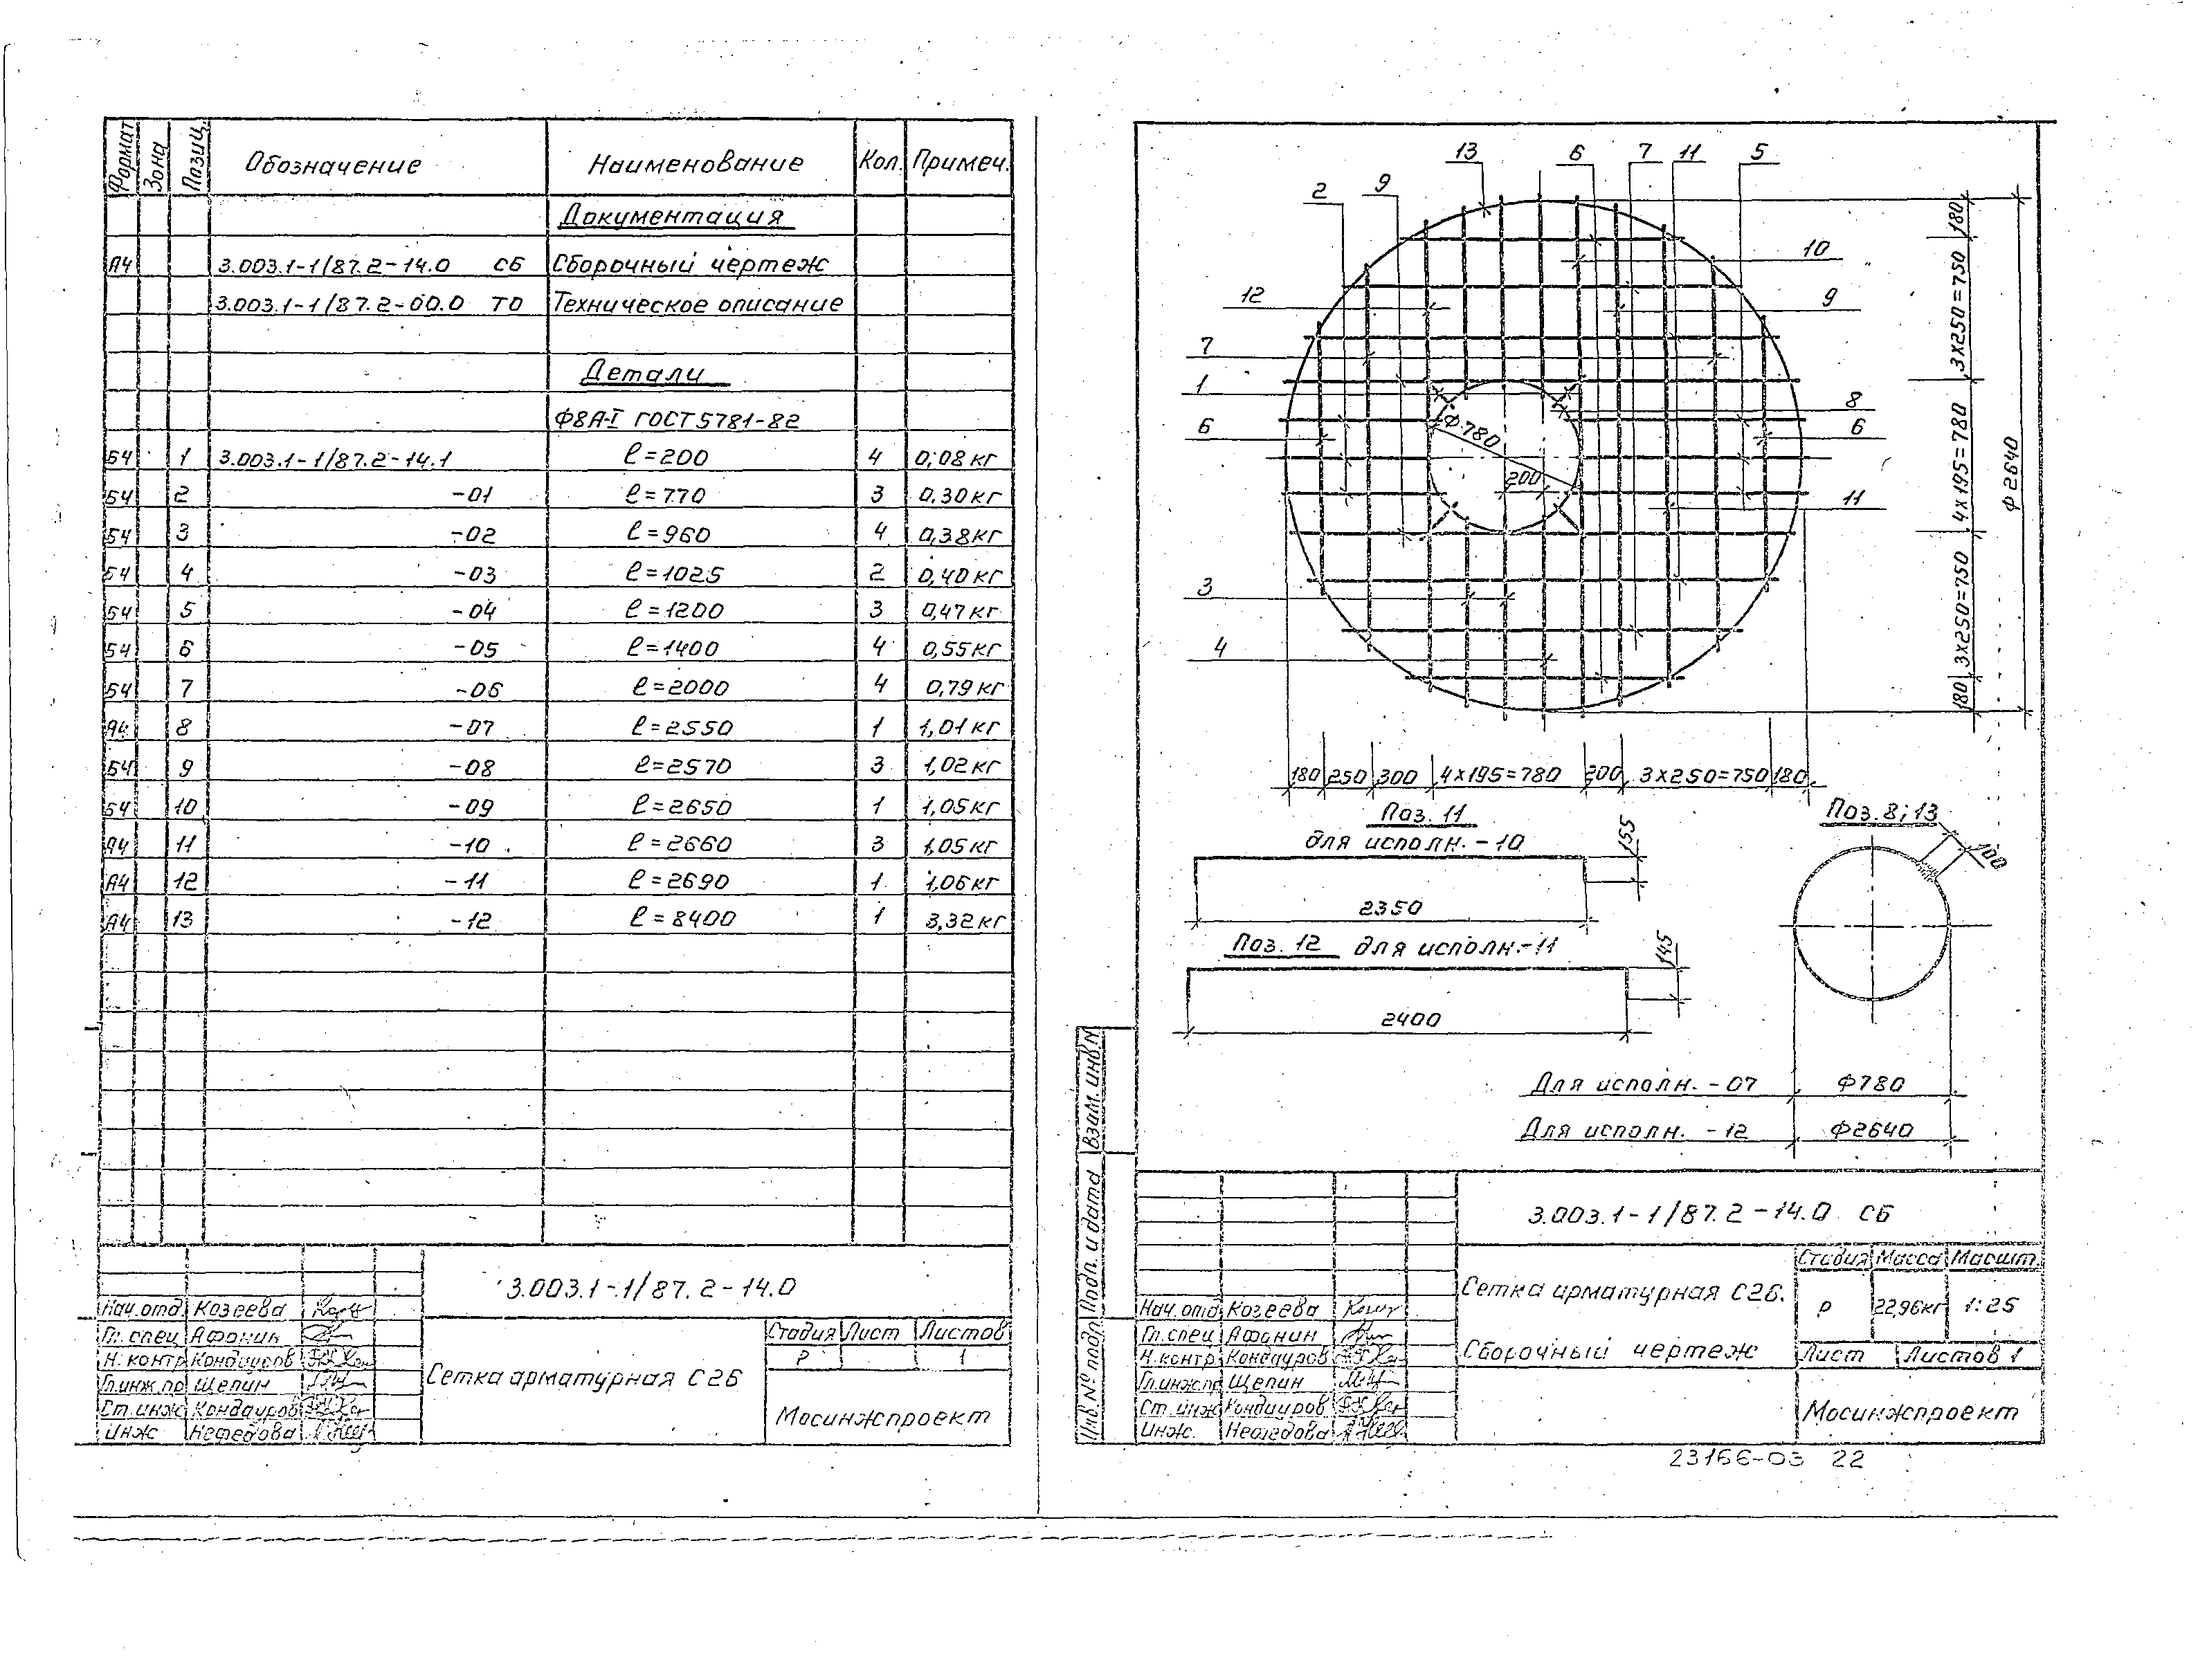 Формат Зона Позиц. Обозначение Наименование Кол. Примеч.
Документация
А4 3.003.1-1/87.2-14.0 СБ Сборочный чертеж
3.003.1-1/87.2-00.0 ТО Техническое описание
Детали
Ф8А-I ГОСТ 5781-82
Б4 1 3.003.1-1/87.2-14.1 ℓ=200 4 0,08кг
Б4 2 -01 ℓ=770 3 0,30кг
Б4 3 -02 ℓ=960 4 0,38кг
Б4 4 -03 ℓ=1025 2 0,40кг
Б4 5 -04 ℓ=1200 3 0,47кг
Б4 6 -05 ℓ=1400 4 0,55кг
Б4 7 -06 ℓ=2000 4 0,79кг
А4 8 -07 ℓ=2550 1 1,01кг
Б4 9 -08 ℓ=2570 3 1,02кг
Б4 10 -09 ℓ=2650 1 1,05кг
А4 11 -10 ℓ=2660 3 1,05кг
А4 12 -11 ℓ=2690 1 1,06кг
А4 13 -12 ℓ=8400 1 3,32кг
3.003.1-1/87.2-14.0
Нач.отд. Козеева
Гл.спец Афонин
Н.контр Кондауров
Гл.инж.пр Щепин
Ст.инж Кондауров
Инж Нефедова
Сетка арматурная С26
Стадия Лист Листов
Р 1
Мосинжпроект
13 6 7 11 5
2 9
10
12 9
7
1 8
6 6
11
3
4
Ф780
200
180
3х250=750
4х195=780
3х250=750
180
Ф2640
180 250 300 4х195=780 200 3х250=750 180
Поз. 11
для исполн. -10
155
2350
Поз. 12 для исполн.-11
145
2400
Поз. 8; 13
100
Для исполн. -07 Ф780
Для исполн. -12 Ф2640
Взам. инв N
Подп. и дата
Инв № подл
3.003.1-1/87.2-14.0 СБ
Сетка арматурная С26.
Сборочный чертеж
Стадия Масса Масшт.
Р 22,96кг 1:25
Лист Листов 1
Нач.отд Козеева
Гл.спец Афонин
Н.контр Кондауров
Гл.инж.пр Щепин
Ст.инж Кондауров
Инж. Нефедова
Мосинжпроект
23166-03 22